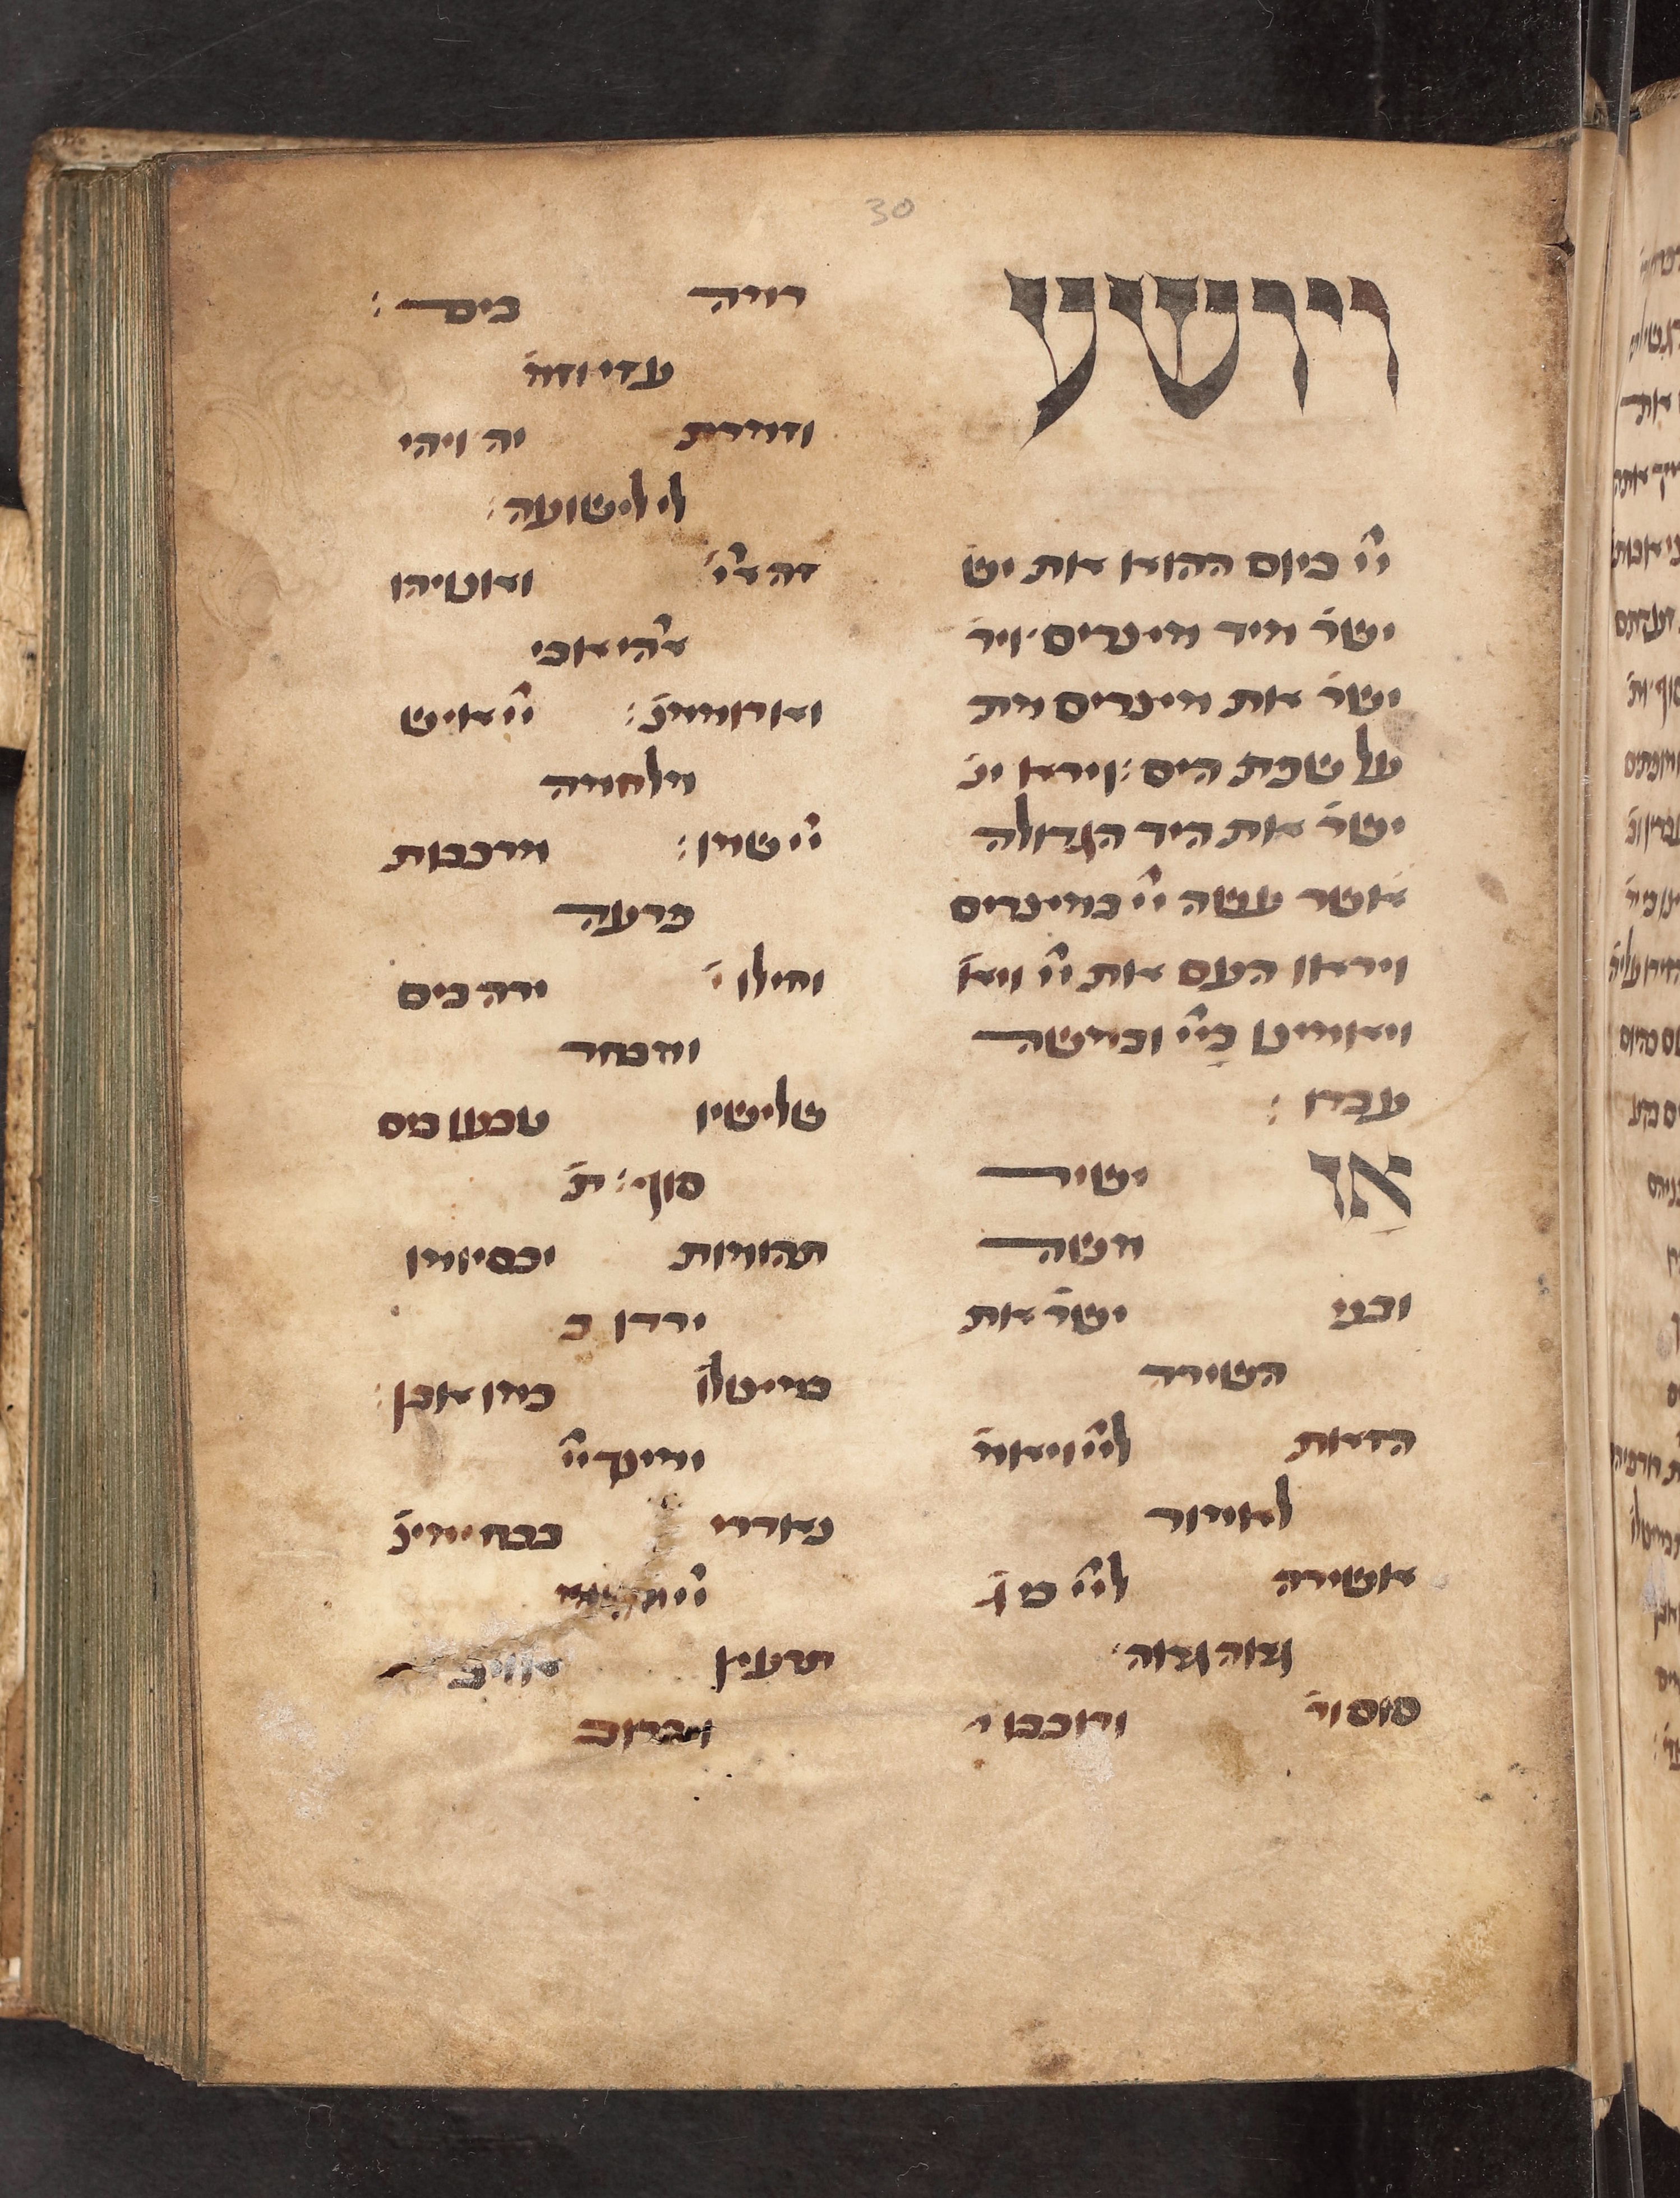 30
ויושע
ייי ביום ההוא את יש
ישר׳ מיד מיצרים׃ ויר׳
ישר׳ את מיצרים מת
על שפת הים׃ וירא יצ
ישר׳ את היד הגדולה
אשר עשה ייי במיצרים
וייראו העם את ייי ויא׳
ויאמינו בייי ובמשה
עבדו׃
אז ישיר
משה
ובני ישר׳ את
השירה
הזאת לייי ויאמ׳
לאמור
אשירה לייי כי ג׳
גאה גאה׃
סוס ור׳ ורוכבו ר׳
רמה בים׃
עזי וזמ׳
וזמרת יה ויהי
לי לישועה׃
זה אלי ואנויהו
אלהי אבי
וארוממנ׳׃ ייי איש
מלחמה
ייי שמו׃ מרכבות
פרעה
וחילו׳ ירה בים
ומבחר
שלישיו טבעו בים
סוף׃ ת׳
תהומות יכסיומו
ירדו ב
במצולו׳ כמו אבן׃
ימינך ייי
נאדרי בכח ימינ׳
ייי
תרעץ אויב
וברוב